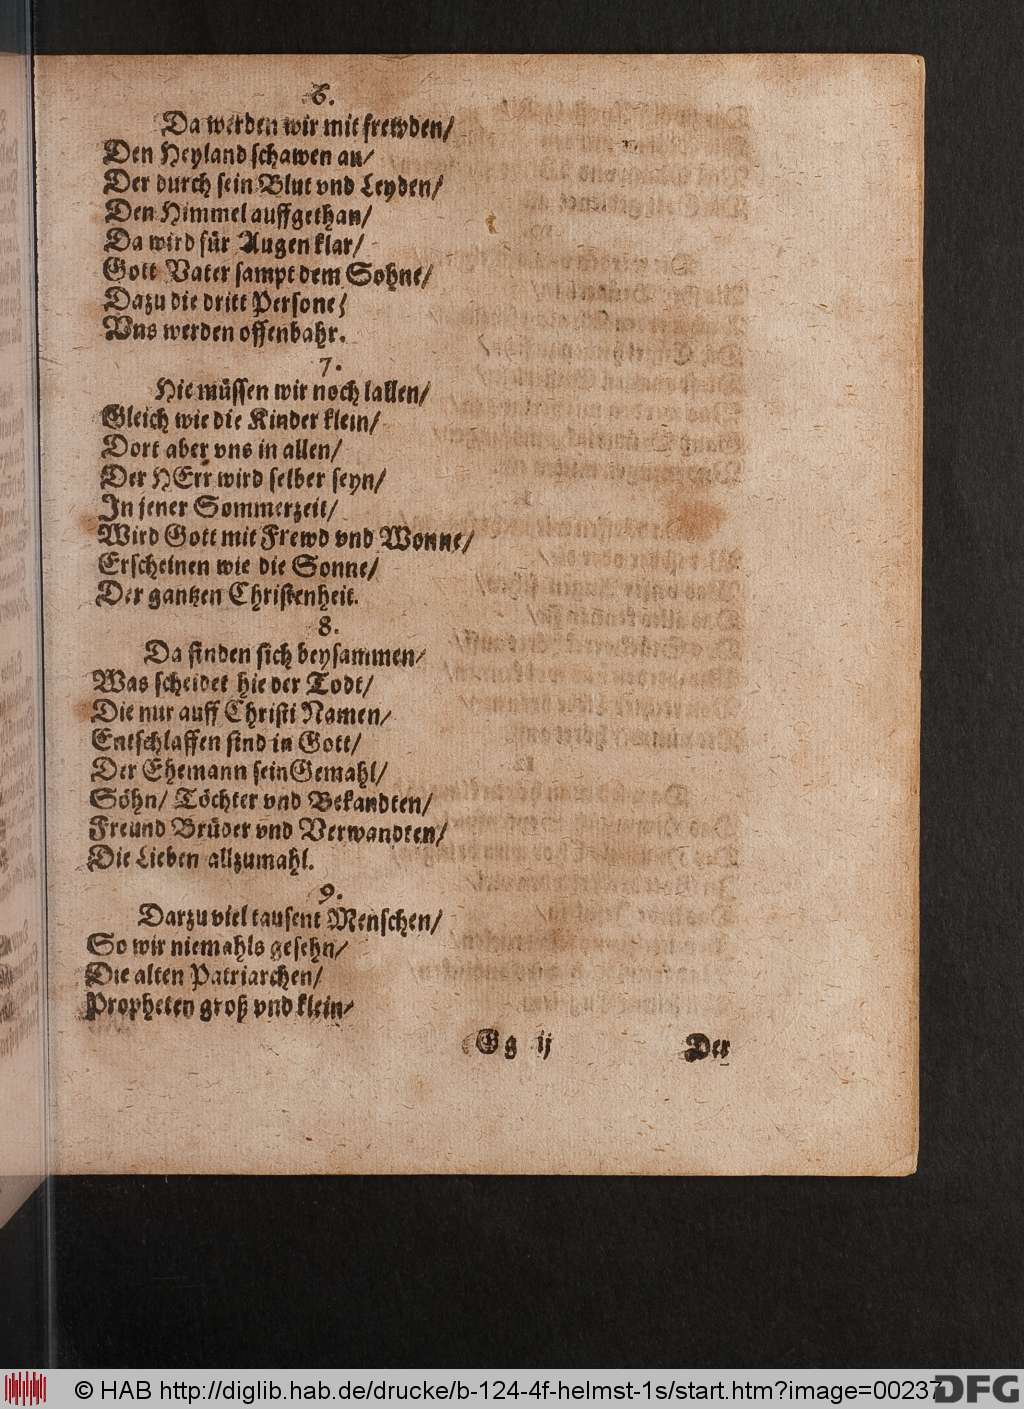 6.
Da werden wir mit frewden/
Den Heyland schawen an/
Der durch sein Blut vnd Leyden/
Den Himmel auffgethan/
Da wird für Augen klar/
Gott Vater sampt dem Sohne/
Dazu die dritt Persone/
Vns werden offenbahr.
7.
Hie müssen wir noch lallen/
Gleich wie die Kinder klein/
Dort aber vns in allen/
Der HErr wird selber seyn/
In jener Sommerzeit/
Wird Gott mit Frewd vnd Wonne/
Erscheinen wie die Sonne/
Der gantzen Christenheit.
8.
Da finden sich beysammen/
Was scheidet hie der Todt/
Die nur auff Christi Namen/
Entschlaffen sind in Gott/
Der Ehemann sein Gemahl/
Söhn/ Töchter vnd Bekandten/
Freund Brüder vnd Verwandten/
Die Lieben allzumahl.
9.
Darzu viel tausent Menschen/
So wir niemahls gesehn/
Die alten Patriarchen/
Propheten groß vnd klein/
Gg ij Der
© HAB http://diglib.hab.de/drucke/b-124-4f-helmst-1s/start.htm?image=00237
DFG